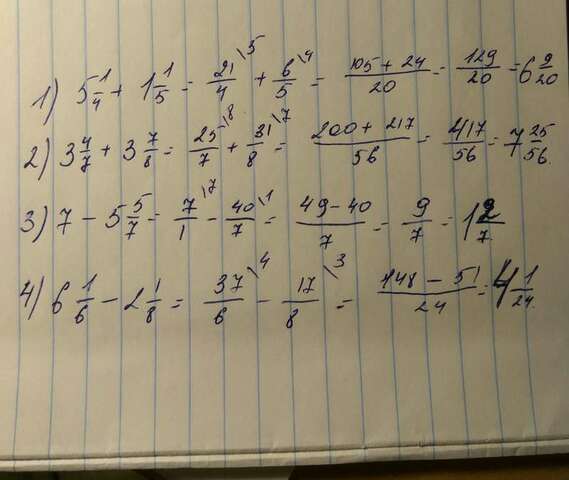 1) 5 1/4 + 1 1/5 = 21/4 \5 + 6/5 \4 = 105 + 24/20 = 129/20 = 6 9/20
2) 3 4/7 + 3 7/8 = 25/7 \8 + 31/8 \7 = 200 + 217/56 = 417/56 = 7 25/56.
3) 7 - 5 5/7 = 7/1 \7 - 40/7 \1 = 49 - 40/7 = 9/7 = 1 2/7.
4) 6 1/6 - 2 1/8 = 37/6 \4 - 17/8 \3 = 148 - 51/24 = 4 1/24.